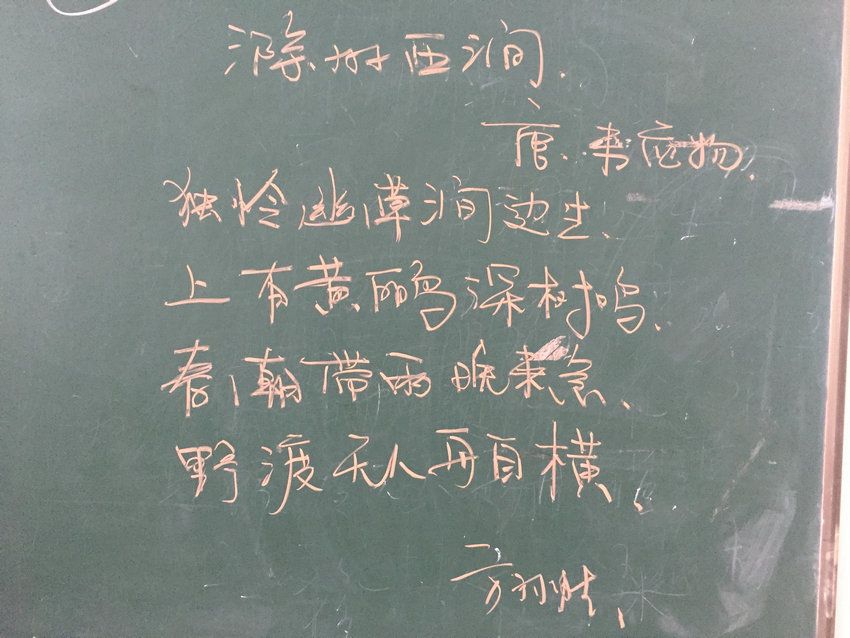 滁州西涧.
唐.韦应物.
独怜幽草涧边生、
上有黄鹂深树鸣、
春潮带雨晚来急、
野渡无人舟自横、